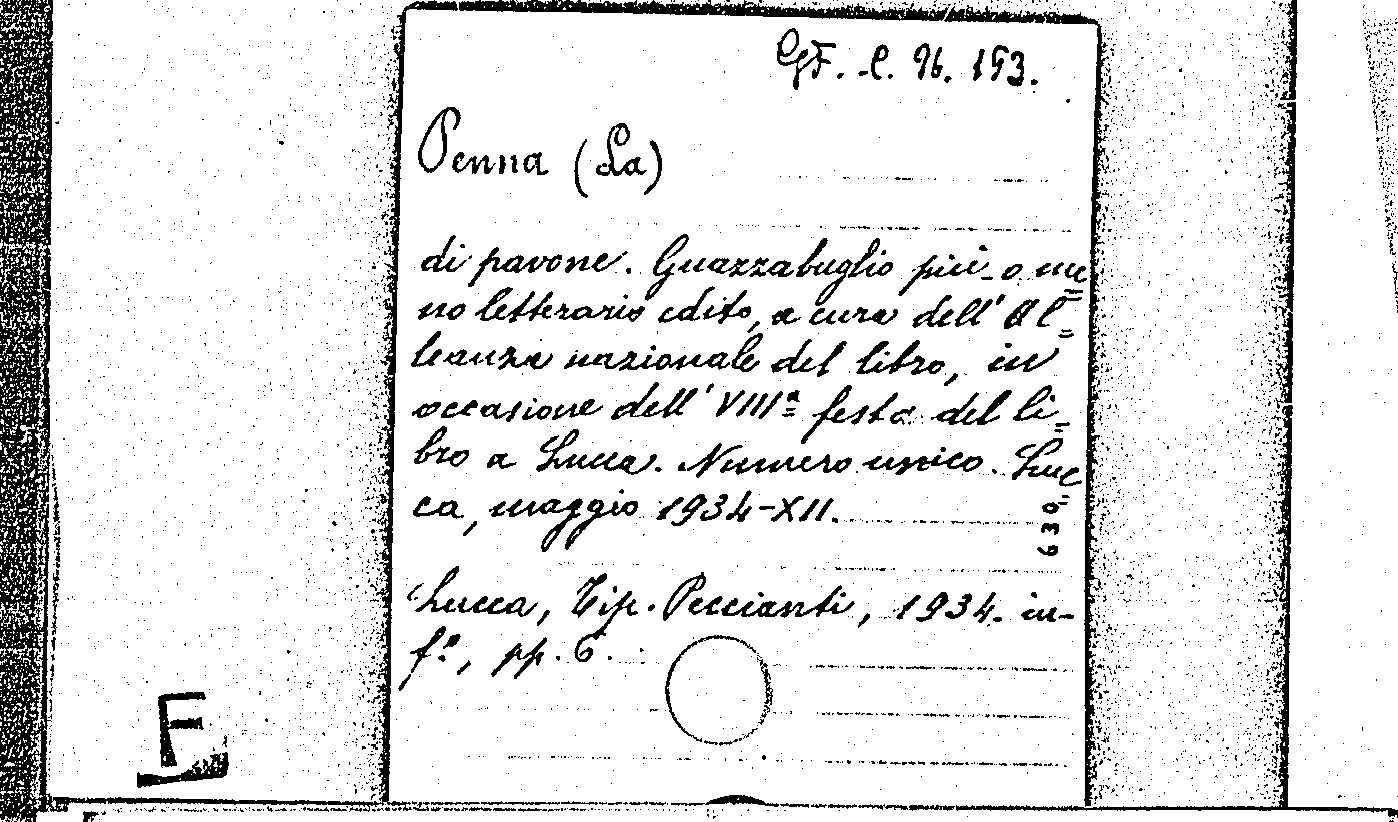 GF. C. 96. 153.
Penna (La)
di pavone. Guazzabuglio più o me=
no letterario edito, a cura dell' Al=
leanza nazionale del libro, in
occasione dell' VIIIª festa del li=
bro a Lucca. Numero unico. Luc=
ca, maggio 1934-XII.
639
Lucca, Tip. Peccianti, 1934. in-
fº., pp. 6.
F